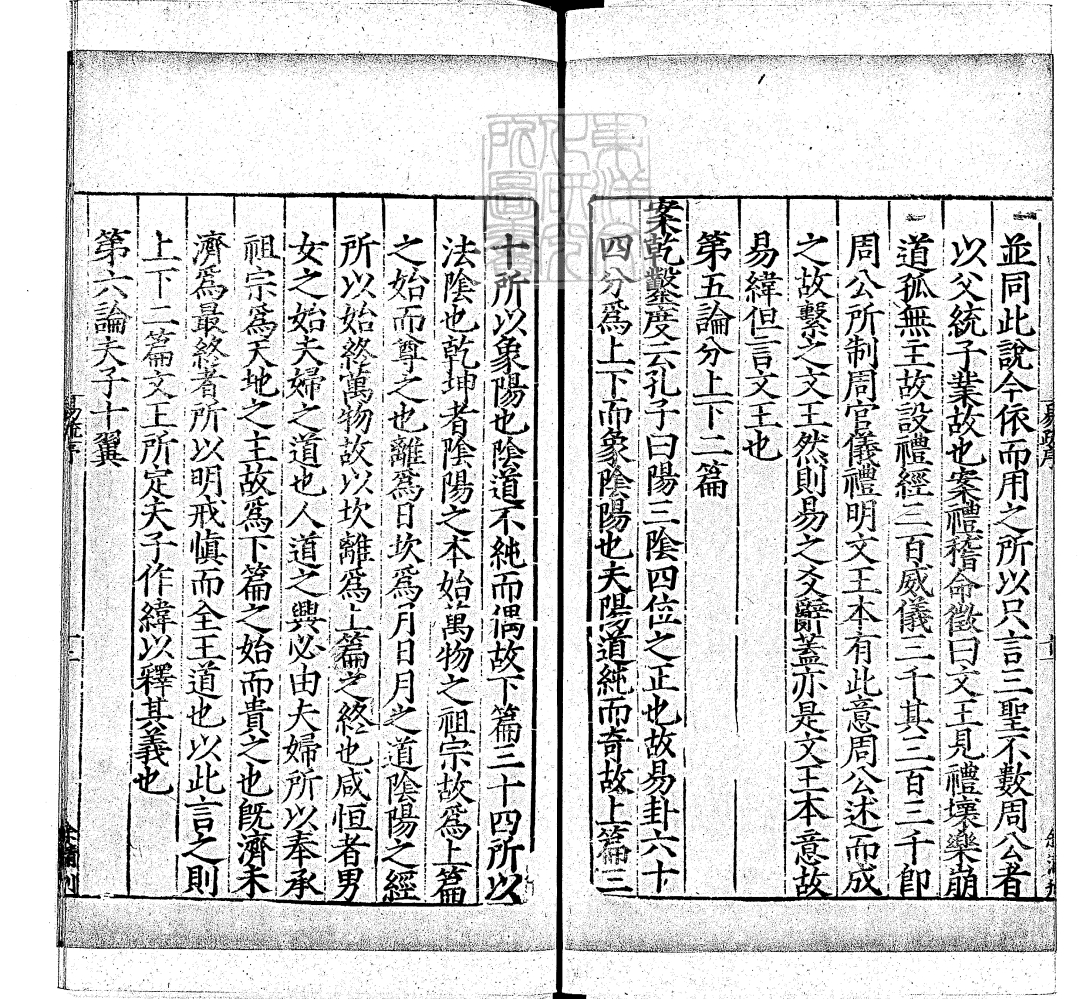 並同此說今依而用之所以只言三聖不數周公者
以父統子業故也案禮稽命徵曰文王見禮壞樂崩
道孤無主故設禮經三百威儀三千其三百三千卽
周公所制周官儀禮明文王本有此意周公述而成
之故繫之文王然則易之爻辭蓋亦是文王本意故
易緯但言文王也
第五論分上下二篇
案乾鑿度云孔子曰陽三陰四位之正也故易卦六十
四分爲上下而象陰陽也夫陽道純而奇故上篇三
十所以象陽也陰道不純而偶故下篇三十四所以
法陰也乾坤者陰陽之本始萬物之祖宗故爲上篇
之始而尊之也離爲日坎爲月日月之道陰陽之經
所以始終萬物故以坎離爲上篇之終也咸恒者男
女之始夫婦之道也人道之興必由夫婦所以奉承
祖宗爲天地之主故爲下篇之始而貴之也旣濟未
濟爲最終者所以明戒愼而全王道也以此言之則
上下二篇文王所定夫子作緯以釋其義也
第六論夫子十翼